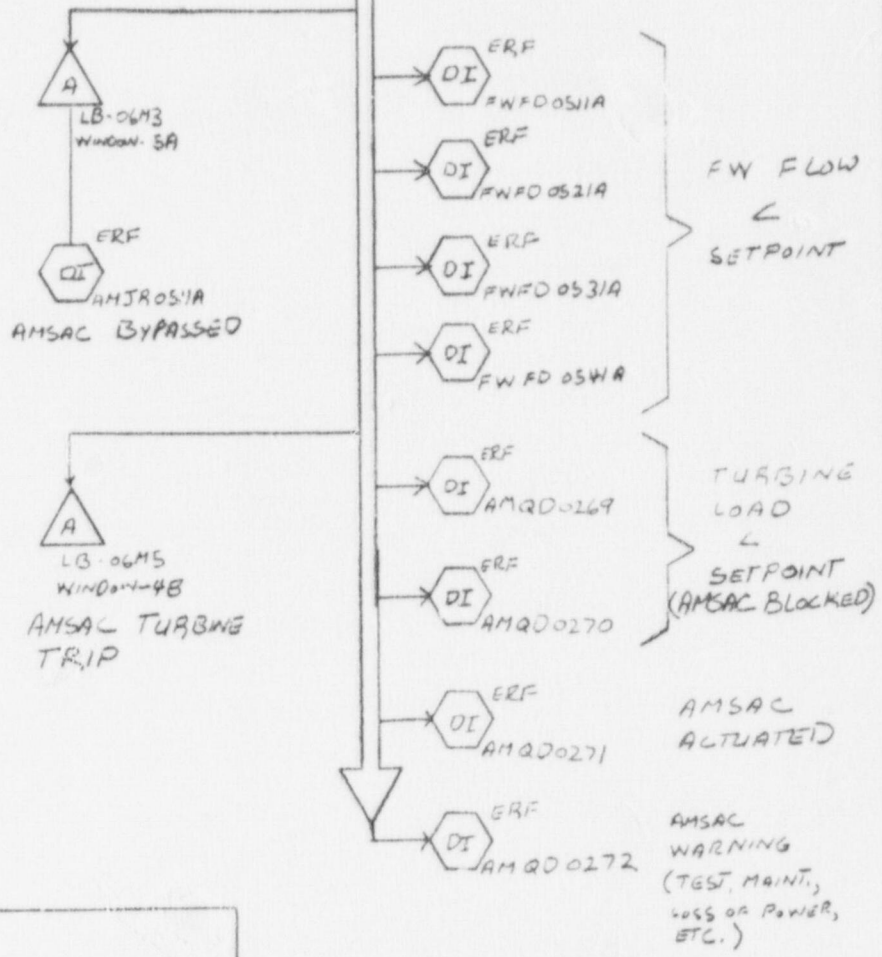 A
LB-06M3
WINDOW-5A
ERF
DI
AMJR0511A
AMSAC BYPASSED
A
LB-06M5
WINDOW-4B
AMSAC TURBINE
TRIP
ERF
DI
FWFD0511A
ERF
DI
FWFD0521A
ERF
DI
FWFD0531A
ERF
DI
FWFD0541A
FW FLOW
<
SETPOINT
ERF
DI
AMQD0269
ERF
DI
AMQD0270
TURBINE
LOAD
<
SETPOINT
(AMSAC BLOCKED)
ERF
DI
AMQD0271
AMSAC
ACTUATED
ERF
DI
AMQD0272
AMSAC
WARNING
(TEST, MAINT.,
LOSS OF POWER,
ETC.)